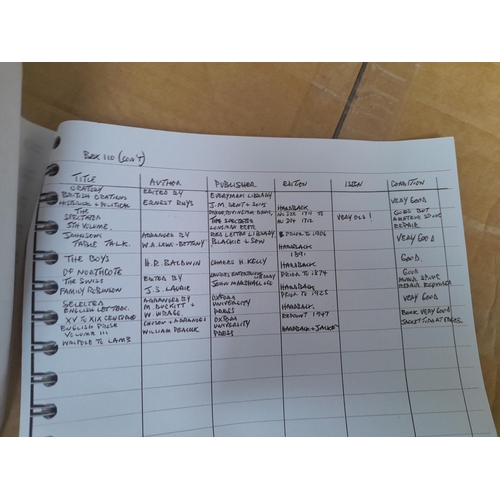 BOX 110 (CON'T)
TITLE AUTHOR PUBLISHER EDITION ISBN CONDITION
ORATORY EDITED BY EVERYMAN LIBRARY
BRITISH ORATIONS ERNEST RHYS J.M DENT & SONS HARDBACK VERY GOOD
HISTORICAL & POLITICAL
THE SPECTATOR VERY OLD! GOOD BUT
SPECTATOR THE SPECTATOR NO 1712 AMATEUR SPINE
5TH VOLUME REPAIR
JOHNSONS ARRANGED BY RED LETTER LIBRARY PRIOR TO 1906 VERY GOOD
TABLE TALK. W.A. LEWIS-BETTANY BLACKIE & SON HARDBACK
THE BOYS H.R. BALDWIN CHARES H. KELLY 1891 HARDBACK GOOD.
OF NORTHCOTE PRIOR TO 1874 GOOD
THE SWISS EDITED BY LIBRARY SPINE
FAMILY ROBINSON J.S. LAURIE JOHN MARSHALL HARDBACK REPAIR REQUIRED
SELECTED ARRANGED BY OXFORD PRIOR TO 1925
ENGLISH LETTERS. M. DUCKITT & UNIVERSITY HARDBACK VERY GOOD
XV TO XIX CENTURIES W. WRAGG PRESS
ENGLISH PROSE CHOSEN & ARRANGED OXFORD REPRINT 1947 BOOK VERY GOOD
VOLUME III WILLIAM PEACOCK UNIVERSITY HARDBACK & JACKET JACKET TORN AT EDGES.
WALPOLE TO LAMB PRESS